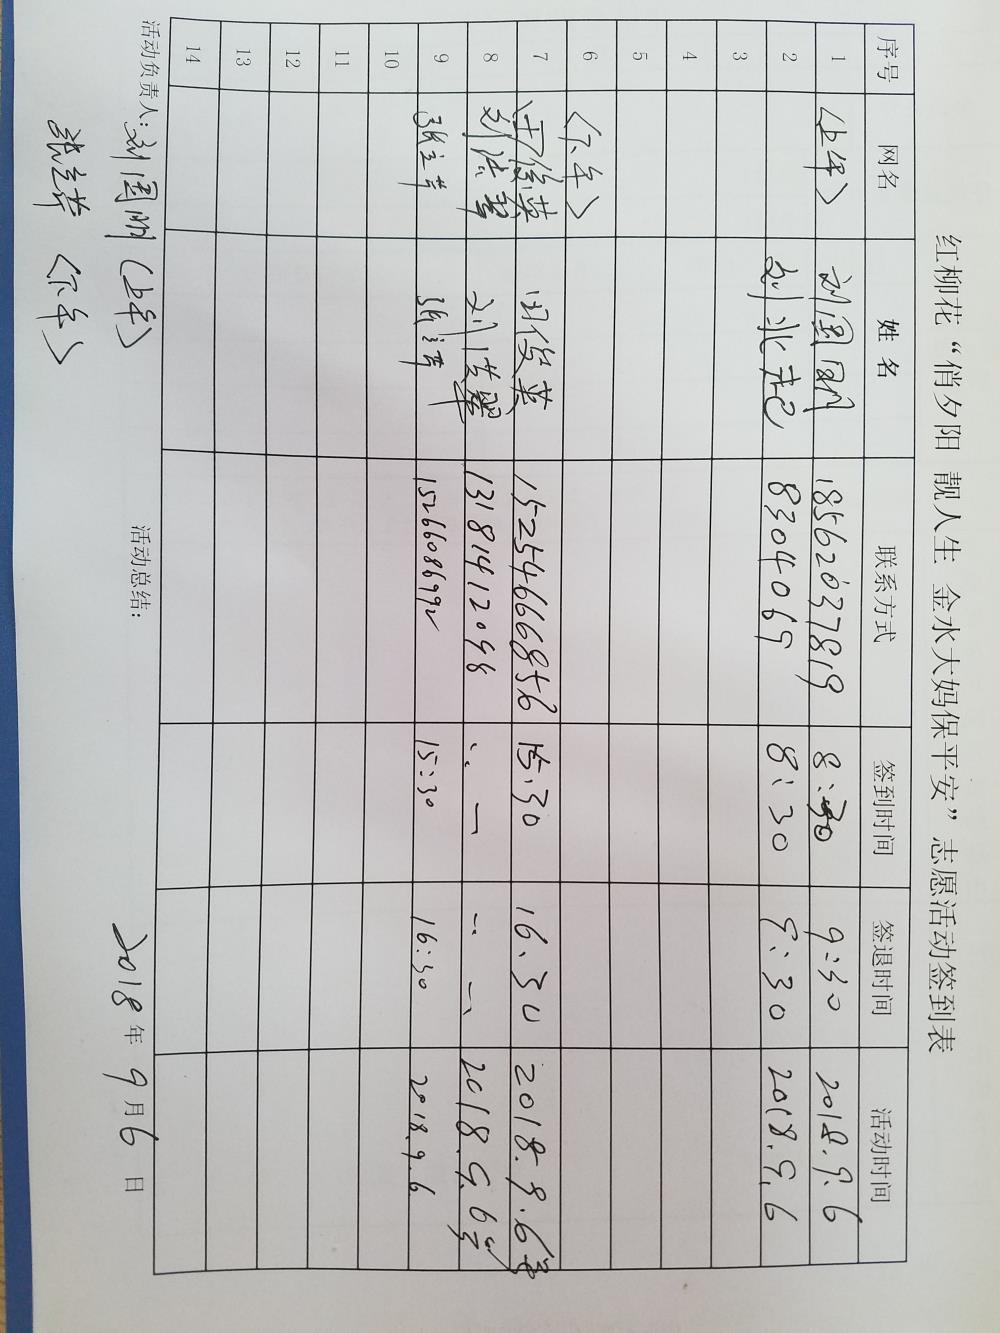 红柳花“俏夕阳 靓人生 金水大妈保平安”志愿活动签到表
序号 网名 姓名 联系方式 签到时间 签退时间 活动时间
1 〈上午〉 刘国明 18562037819 8:30 9:30 2018.9.6
2 刘北 8304069 8:30 9:30 2018.9.6
3
4
5
6 〈下午〉
7 田俊英 田俊英 15254666856 15:30 16:30 2018.9.6号
8 刘洪翠 刘洪翠 13181412098 2018.9.6号
9 张立芳 张立芳 15266086992 15:30 16:30 2018.9.6
10
11
12
13
14
活动负责人:刘国明(上午) 活动总结: 2018年9月6日
张立芳〈下午〉